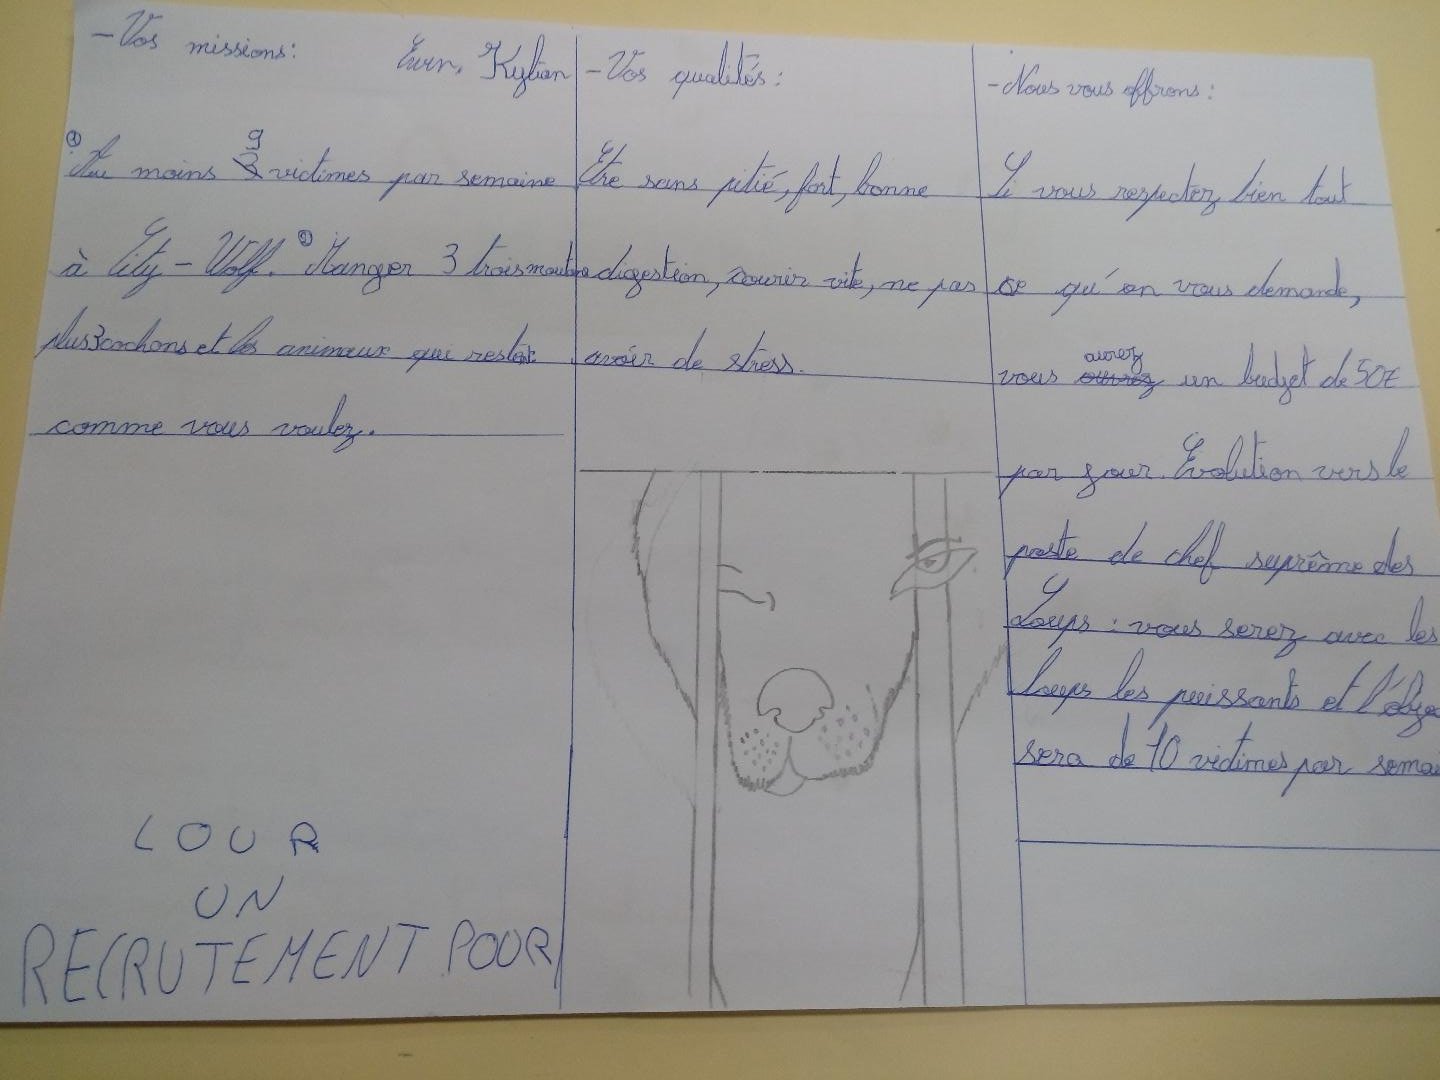 - Vos missions:
Ewn, Kylian
① Au moins 9 victimes par semaine
à City - Wolf. ② Manger 3 trois moutons
plus 3 cochons et les animaux qui restent
comme vous voulez.
LOUR
UN
RECRUTEMENT POUR
- Vos qualités:
Etre sans pitié, fort, bonne
digestion, courir vite, ne pas
avoir de stress.
- Nous vous offrons:
Si vous respectez bien tout
ce qu'on vous demande,
aurez
vous un budget de 50€
par jour. Evolution vers le
poste de chef suprême des
Loups : vous serez avec les
loups les puissants et
sera de 10 victimes par semai